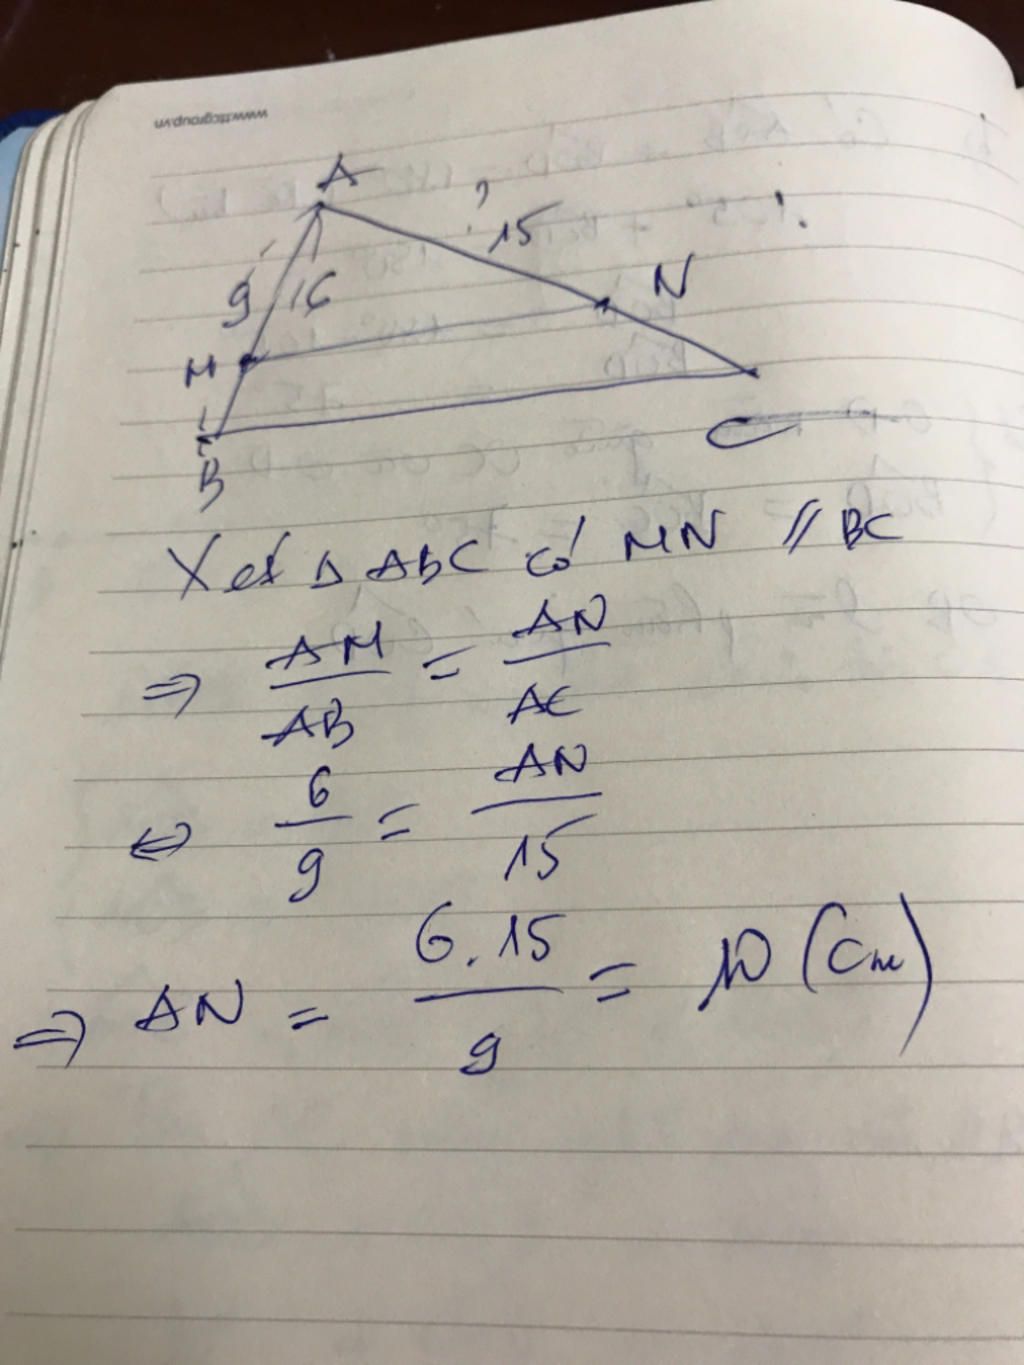 www.ttcgroup.vn
A
?
15
9
6
N
M
B
C
Xét Δ ABC có MN // BC
⇒ AM/AB = AN/AC
⇔ 6/9 = AN/15
⇒ AN = 6.15/9 = 10 (cm)